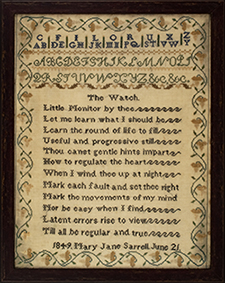 C F I L O R U X Z
A B D E G H J K M N P Q S T V W Y
ABCDEFGHIJKLMNOP
QRSTUVWXYZ &c &c
The Watch
Little Monitor by thee
Let me learn what I should be
Learn the round of life to fill
Useful and progressive still
Thou canst gentle hints impart
How to regulate the heart
When I wind thee up at night
Mark each fault and set thee right
Mark the movements of my mind
Nor be easy when I find
Latent errors rise to view
Till all be regular and true
1849 Mary Jane Sarrell June 21